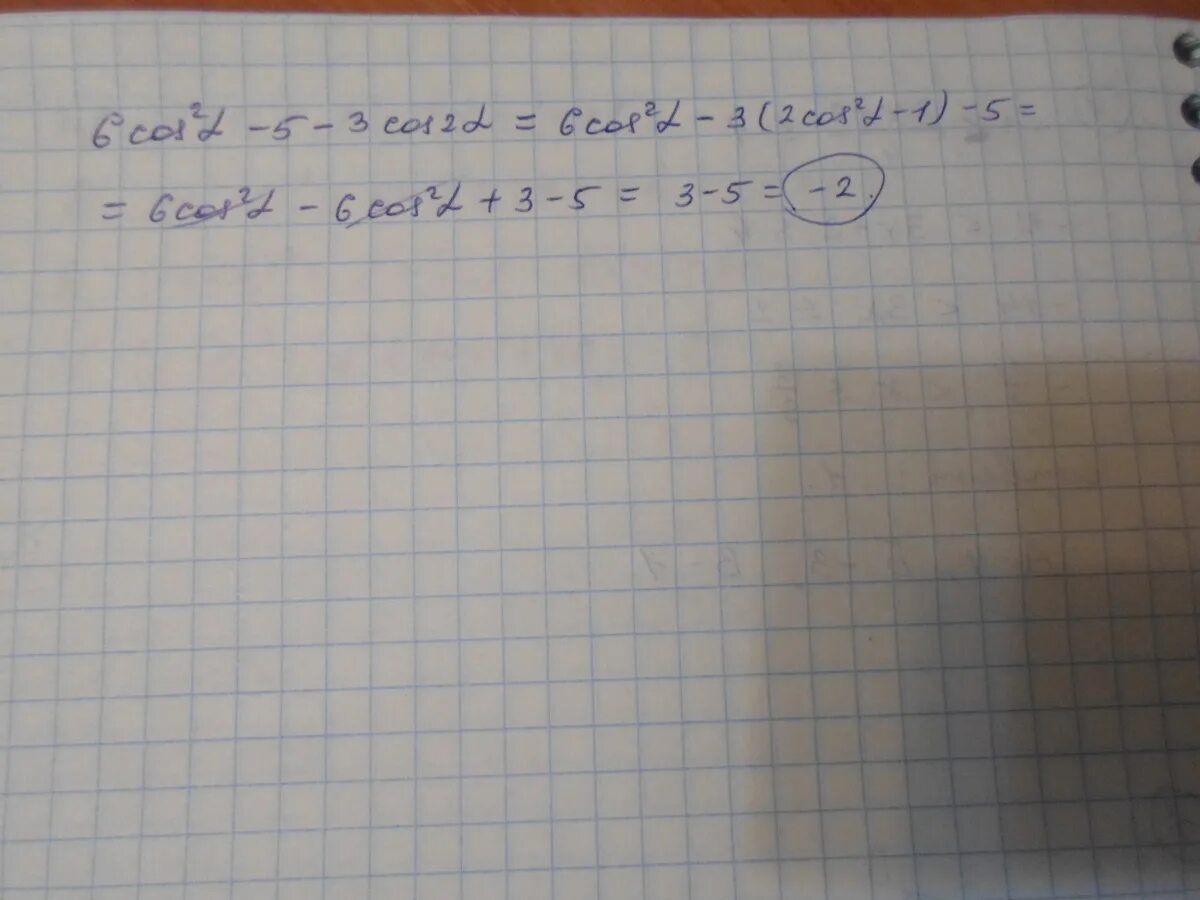 6cos²α - 5 - 3cos2α = 6cos²α - 3(2cos²α - 1) - 5 =
= 6cos²α - 6cos²α + 3 - 5 = 3 - 5 = -2.